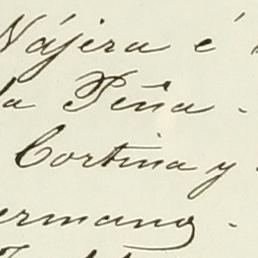 Nájera é
la Peña.
Cortina y
ermano.